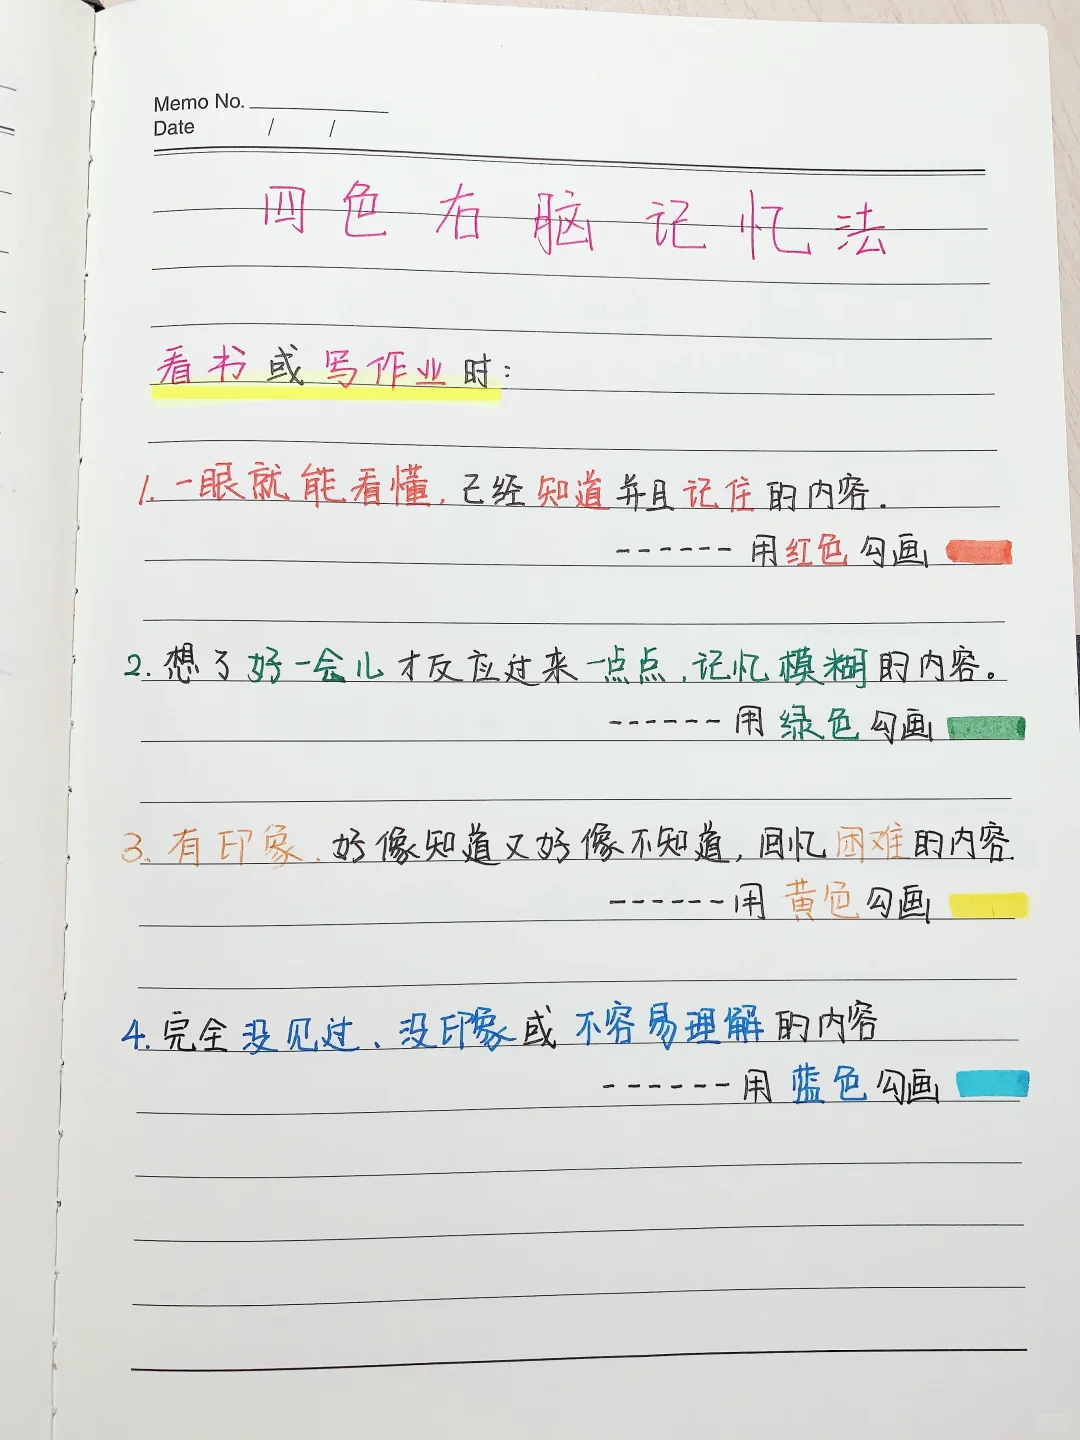 Memo No.
Date / /
四色右脑记忆法
看书或写作业时:
1. 一眼就能看懂, 已经知道并且记住的内容.
------ 用红色勾画
2. 想了好一会儿才反应过来一点点、记忆模糊的内容。
------ 用绿色勾画
3、有印象、好像知道又好像不知道, 回忆困难的内容.
------ 用黄色勾画
4. 完全没见过、没印象或不容易理解的内容
------ 用蓝色勾画